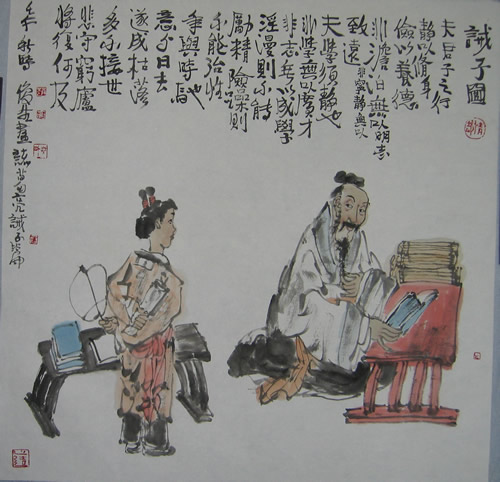 誡子圖
夫君子之行
静以修身
儉以養德
非澹泊無以明志
致遠非寧静無以
夫學須静也
非學無以廣才
非志無以成學
淫漫則不能
勵精險躁則
不能治性
年與時馳
意與日去
遂成枯落
多不接世
悲守窮廬
將復何及
畫諸葛亮誡子